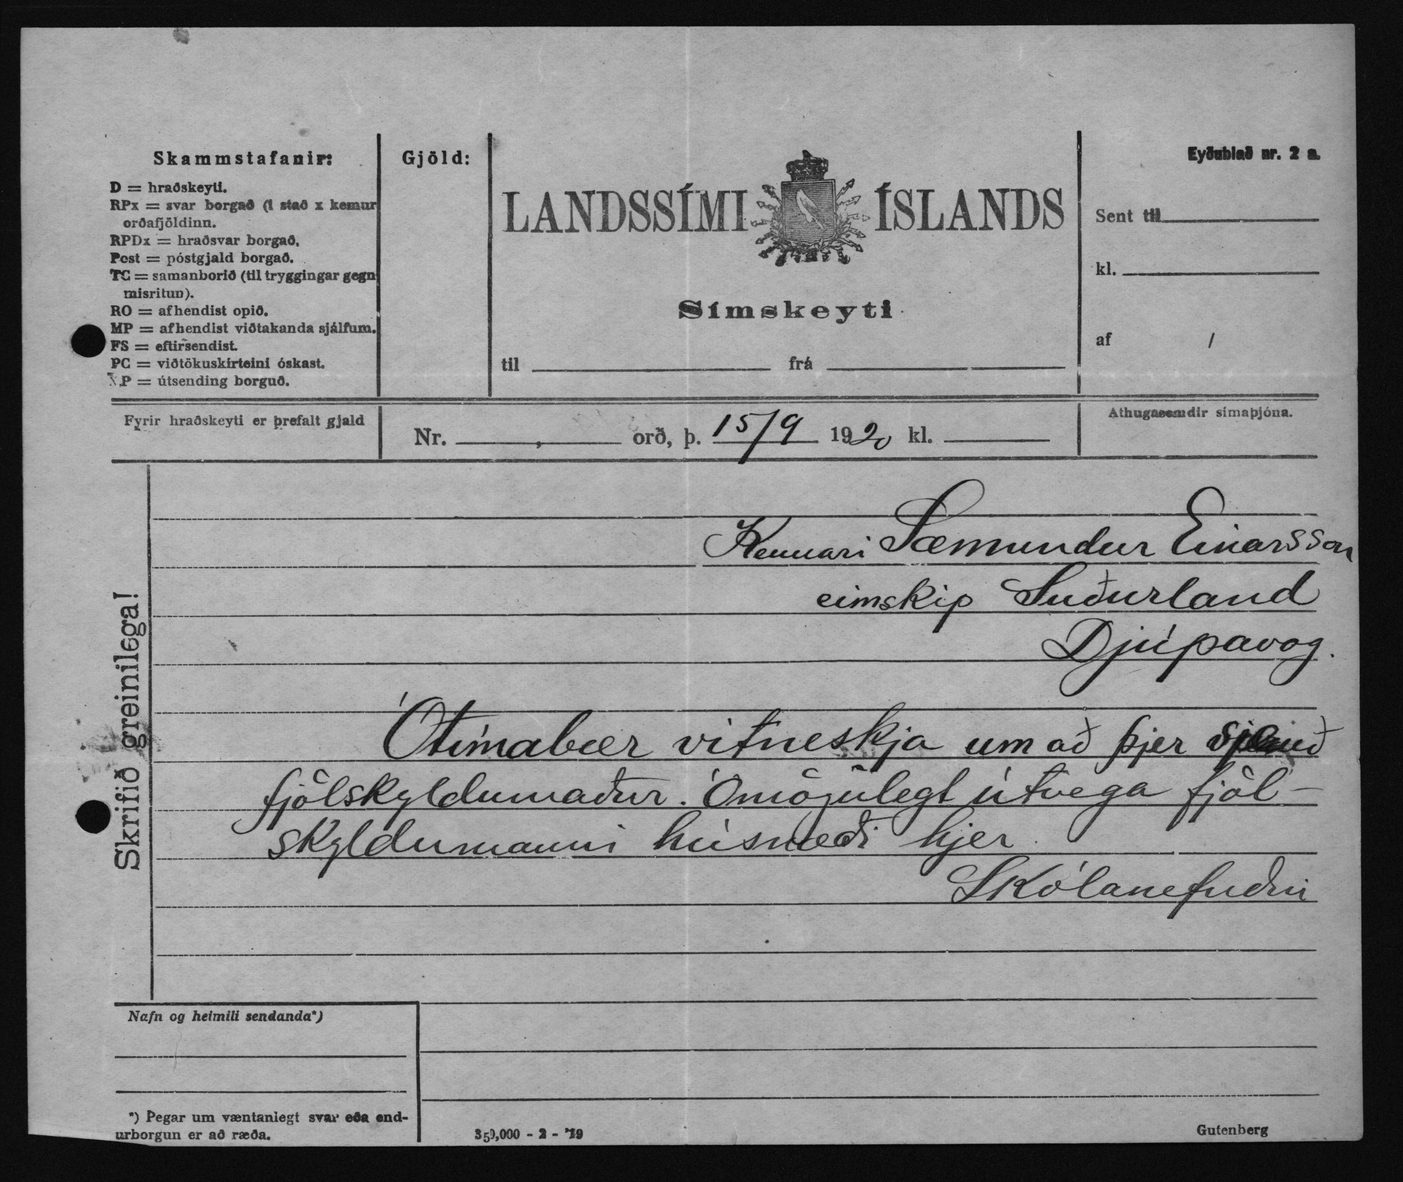 Skammstafanir:
D = hraðskeyti.
RPx = svar borgað (í stað x kemur
orðafjöldinn.
RPDx = hraðsvar borgað.
Post = póstgjald borgað.
TC = samanborið (til tryggingar gegn
misritun).
RO = afhendist opið.
MP = afhendist viðtakanda sjálfum.
FS = eftirsendist.
PC = viðtökuskírteini óskast.
XP = útsending borguð.
Fyrir hraðskeyti er þrefalt gjald
Gjöld:
LANDSSÍMI ÍSLANDS
Símskeyti
til frá
Eyðublað nr. 2 a.
Sent til
kl.
af /
Athugasemdir símaþjóna.
Nr. , orð, þ. 15/9 1920 kl.
Skrifið greinilega!
Kennari Sæmundur Einarsson
eimskip Suðurland
Djúpavog.
Ótímabær vitneskja um að þjer
fjölskyldumaður. Ómögulegt útvega fjöl-
skyldumanni húsnæði hjer
Skólanefndin
Nafn og heimili sendanda*)
*) Þegar um væntanlegt svar eða end-
urborgun er að ræða.
350,000 - 2 - '19
Gutenberg